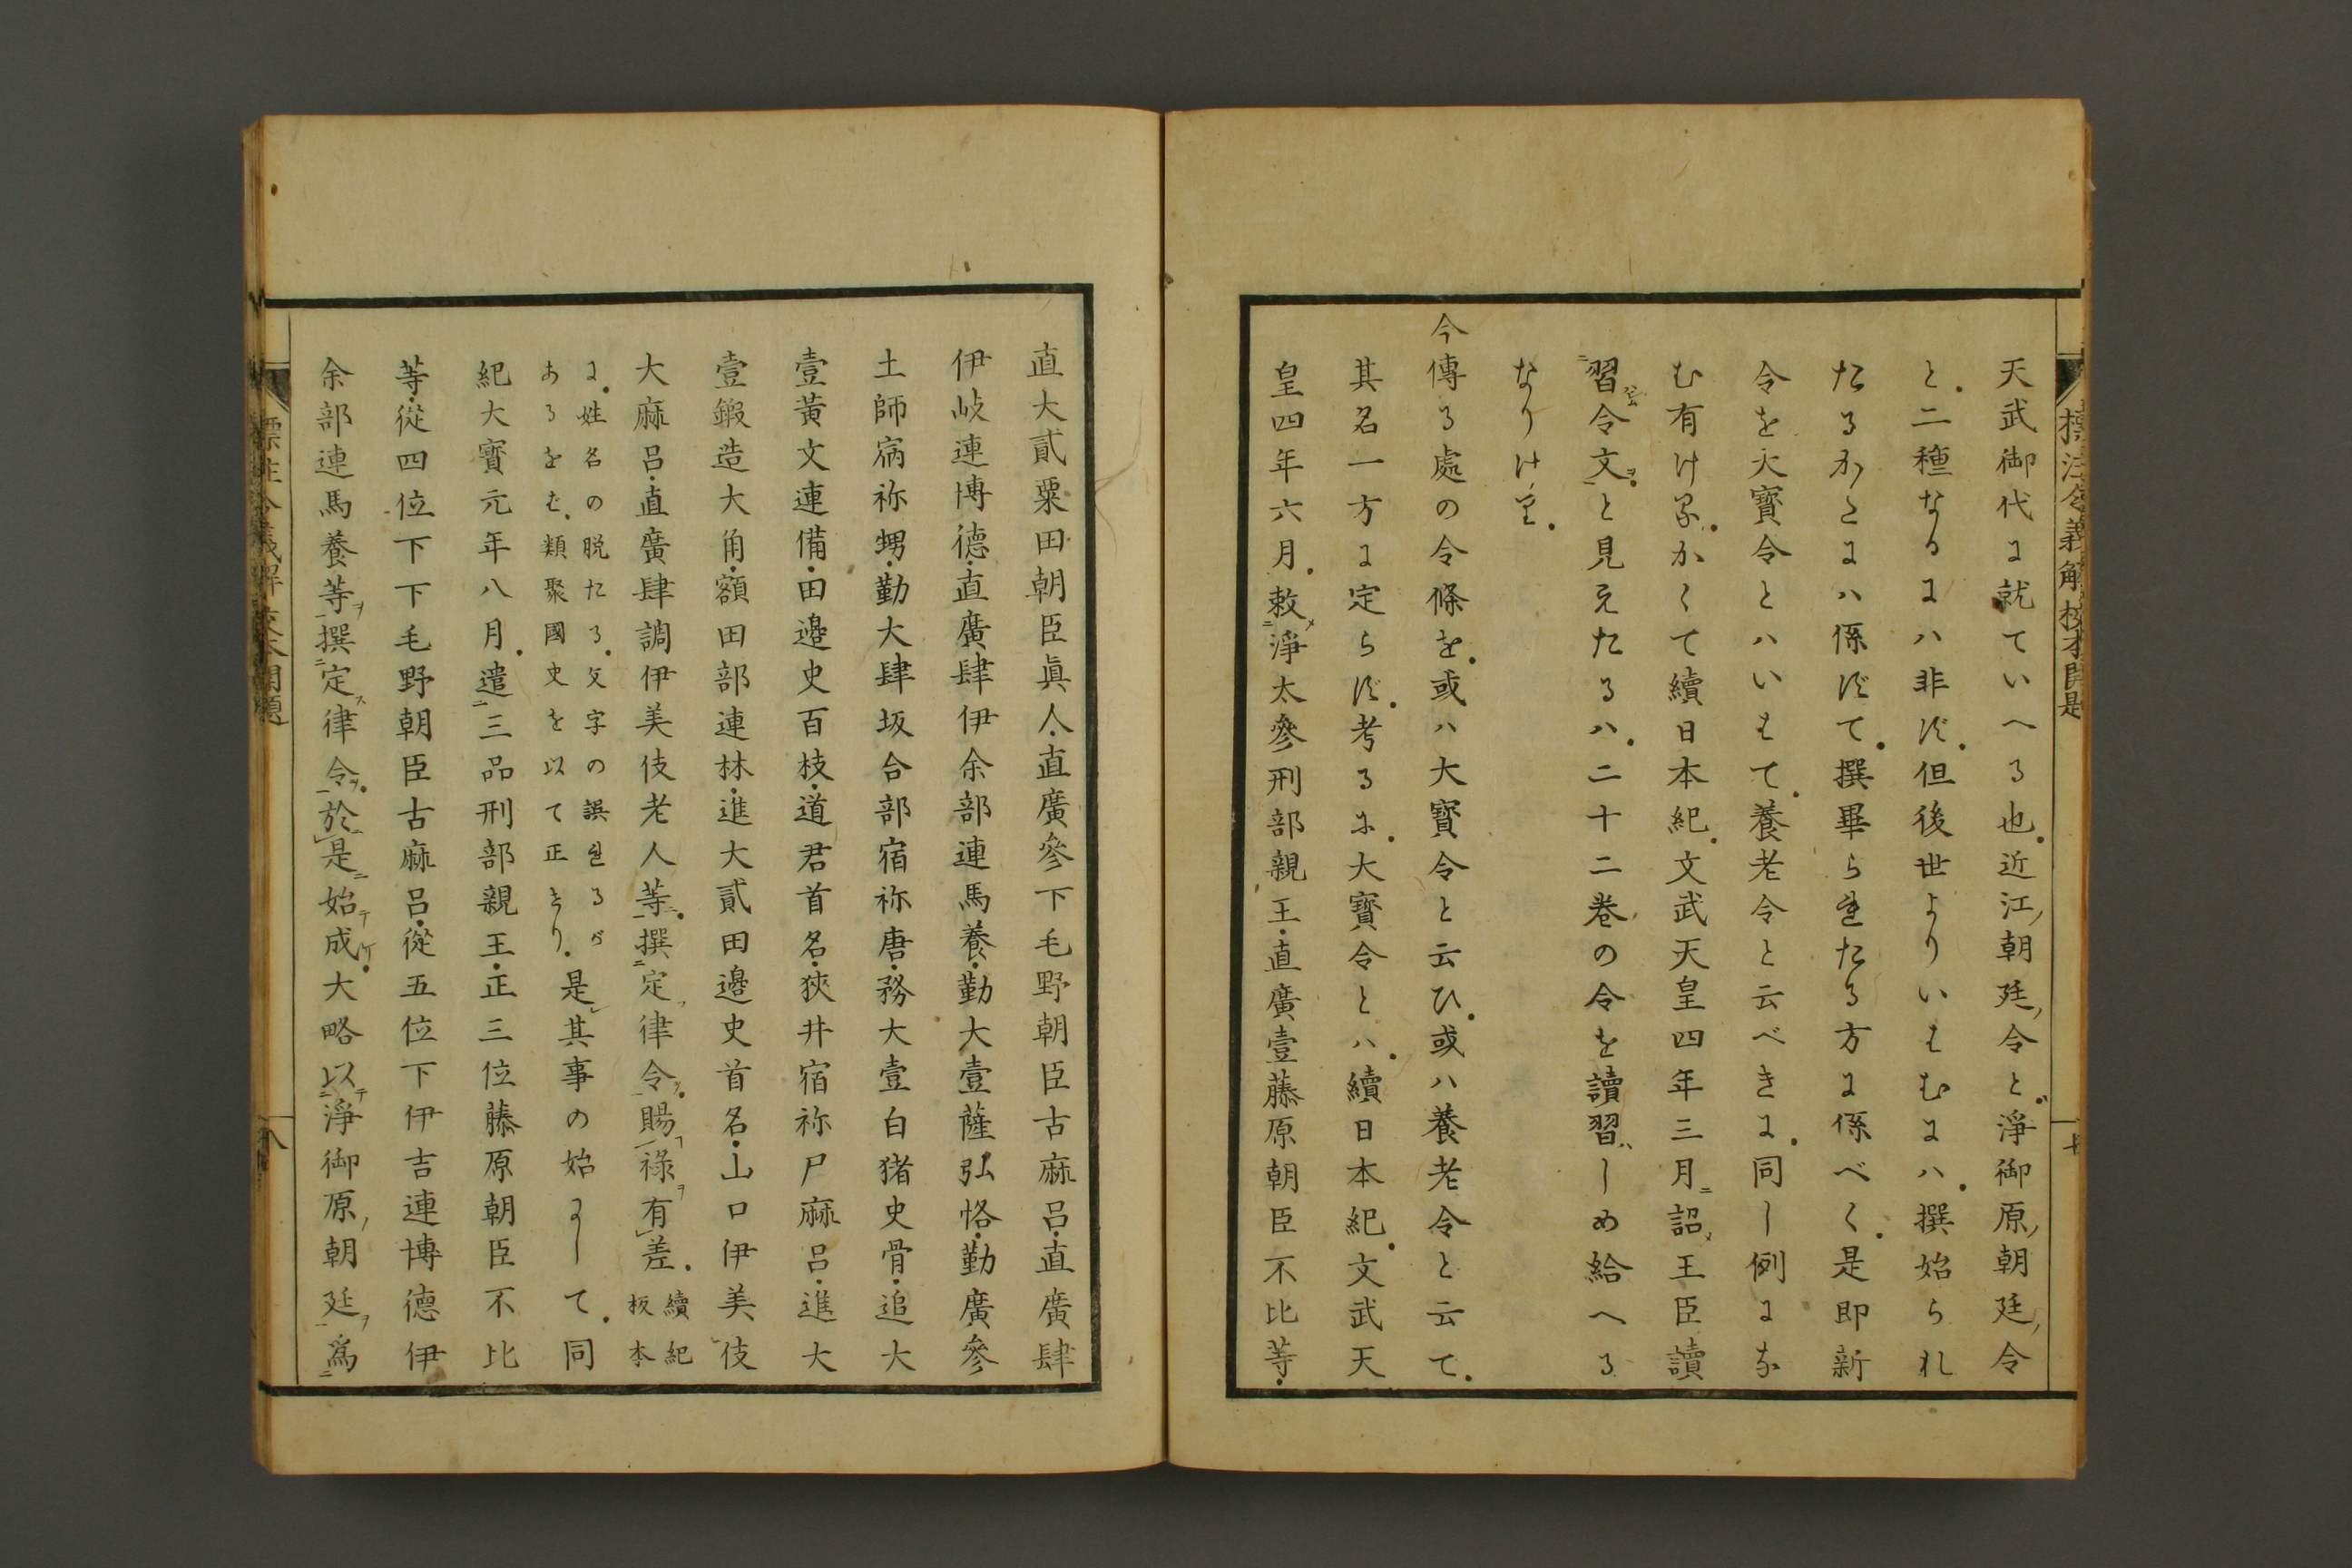 標注令義解校本開題
七
天武御代に就ていへる也。近江ノ朝廷ノ令と。淨御原ノ朝廷ノ令
と。二種なるにハ非ず。但後世よりいはむにハ。撰始られ
たるかたにハ係ずて。撰畢られたる方に係べく。是即新
令を大寶令とハいはて。養老令と云べきに。同し例にな
む有ける。かくて續日本紀。文武天皇四年三月。詔王臣讀
習令文。と見えたるハ。二十二卷の令を讀習しめ給へる
なりけり。
今傳る處の令條を。或ハ大寶令と云ひ。或ハ養老令と云て。
其名一方に定らず。考るに。大寶令とハ。續日本紀。文武天
皇四年六月。敕淨太參刑部親王・直廣壹藤原朝臣不比等・
直大貳粟田朝臣眞人・直廣參下毛野朝臣古麻呂・直廣肆
伊岐連博德・直廣肆伊余部連馬養・勤大壹薩弘恪・勤廣參
土師宿祢甥・勤大肆坂合部宿祢唐・務大壹白猪史骨・追大
壹黃文連備・田邊史百枝・道君首名・狹井宿祢尸麻呂・進大
壹鍜造大角・額田部連林・進大貳田邊史首名・山口伊美伎
大麻呂・直廣肆調伊美伎老人等。撰定律令。賜祿有差。續紀板本
に。姓名の脱たる。文字の誤れるがあるをば。類聚國史を以て正せり。是其事の始にして。同
紀大寶元年八月。遣三品刑部親王・正三位藤原朝臣不比
等・從四位下下毛野朝臣古麻呂・從五位下伊吉連博德伊
余部連馬養等撰定律令。於是始成。大略以淨御原ノ朝廷爲
標注令義解校本開題
八